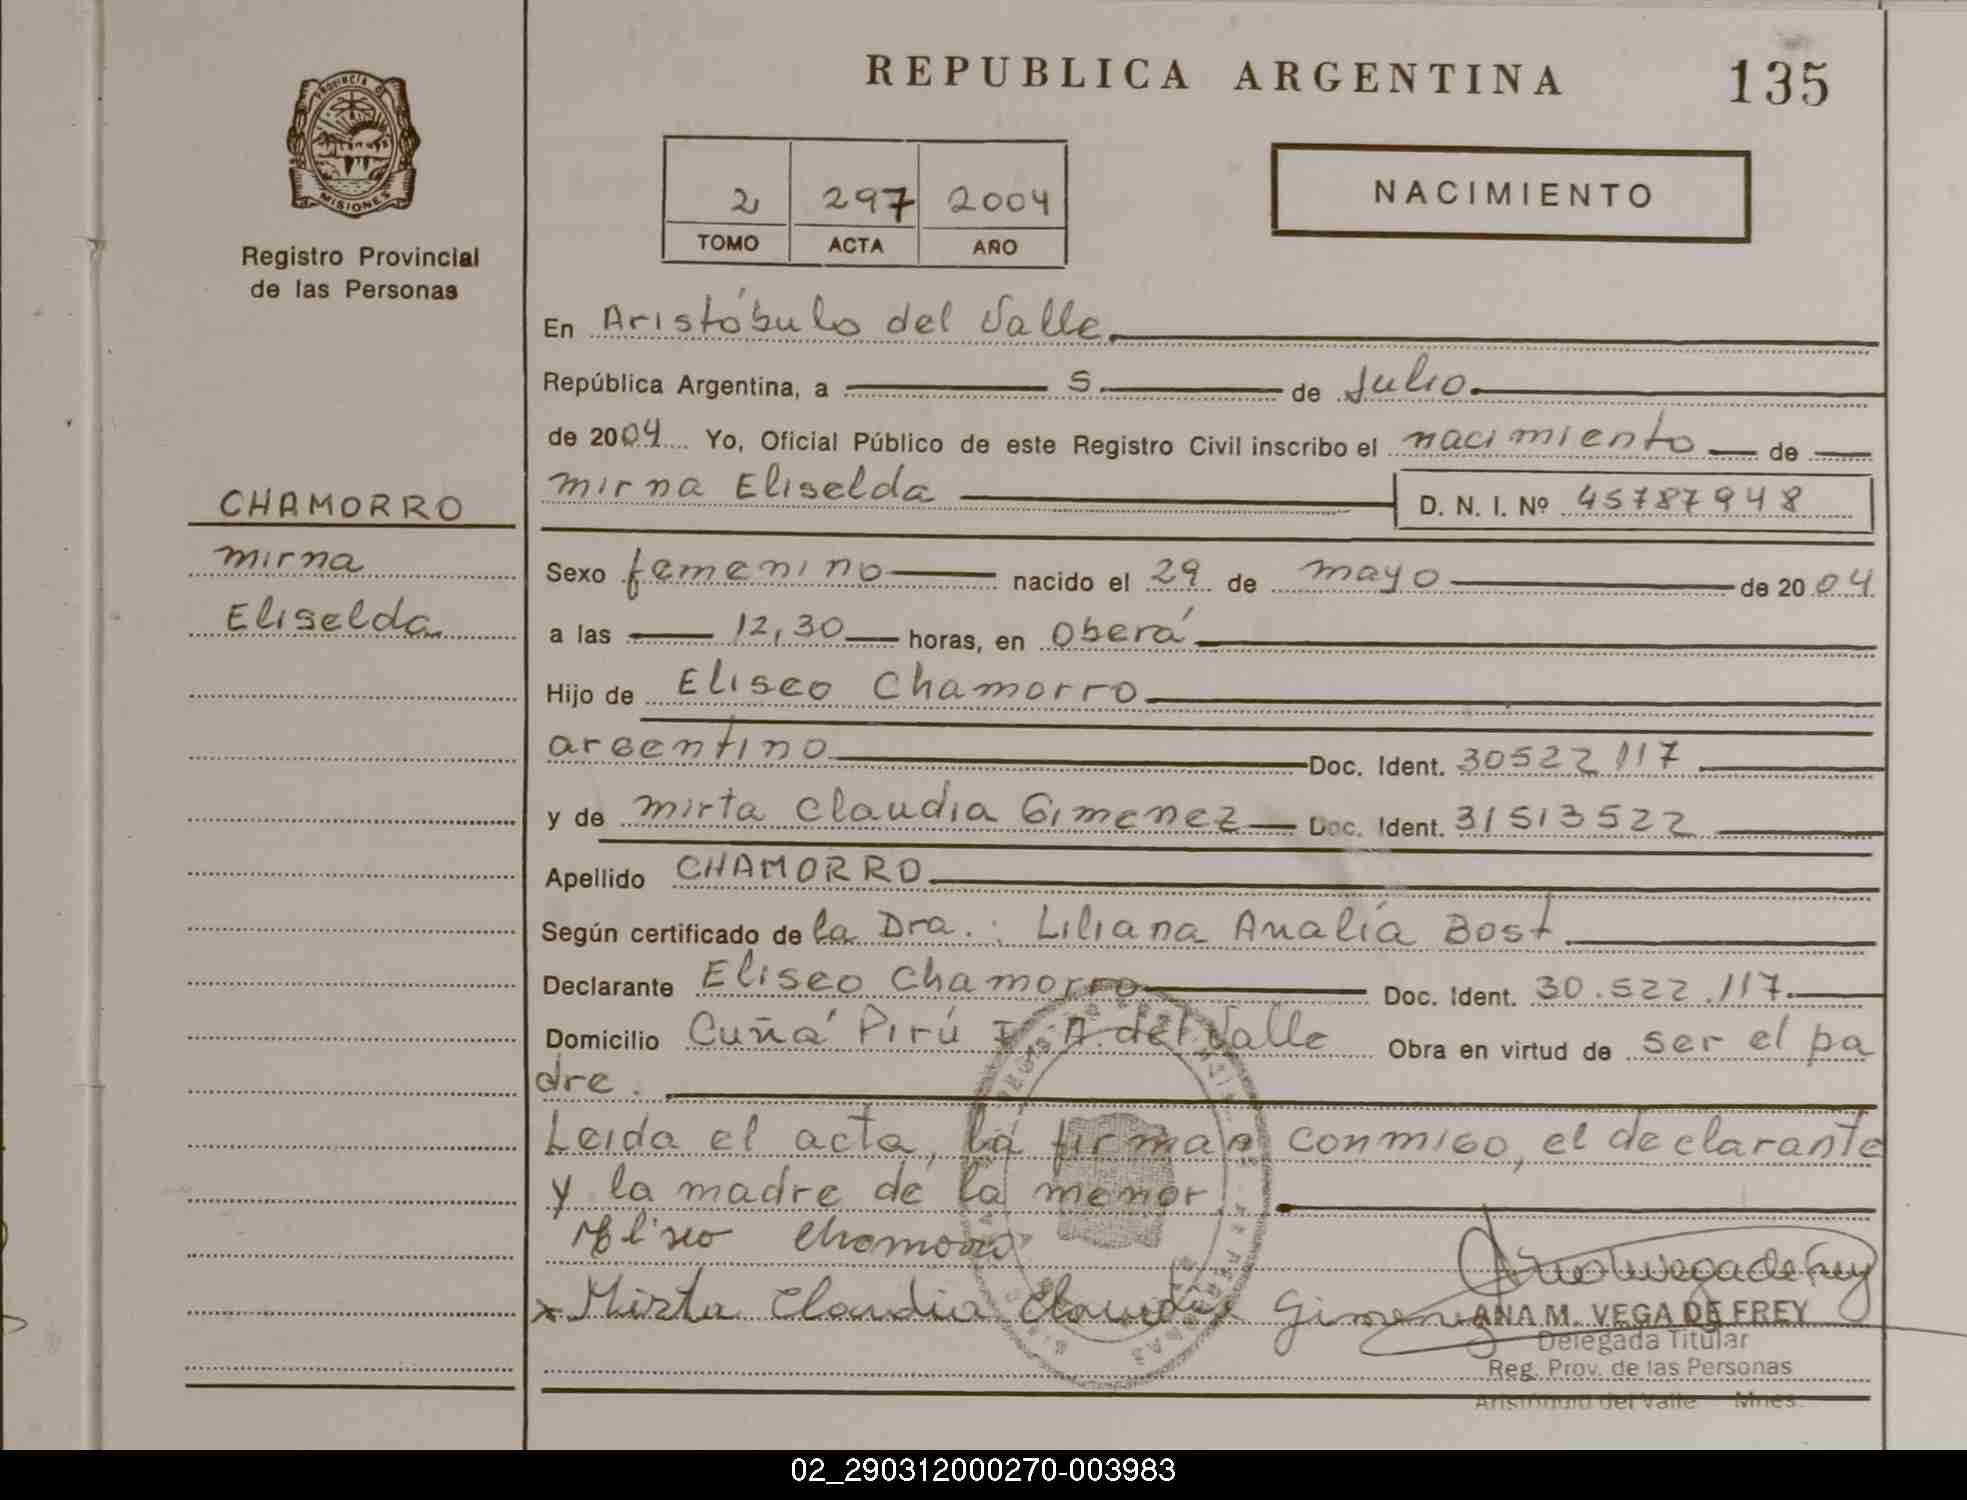 REPUBLICA ARGENTINA
135
PROVINCIA DE
MISIONES
Registro Provincial
de las Personas
2 297 2004
TOMO ACTA AÑO
NACIMIENTO
CHAMORRO
Mirna
Eliselda
En Aristóbulo del Valle
República Argentina, a 5 de Julio
de 2004 Yo, Oficial Público de este Registro Civil inscribo el nacimiento de
Mirna Eliselda D. N. I. Nº 45787948
Sexo femenino nacido el 29 de mayo de 2004
a las 12,30 horas, en Oberá
Hijo de Eliseo Chamorro
argentino Doc. Ident. 30522117
y de Mirta Claudia Gimenez Doc. Ident. 31513522
Apellido CHAMORRO
Según certificado de la Dra.: Liliana Analía Bost
Declarante Eliseo Chamorro Doc. Ident. 30.522.117.
Domicilio Cuñá Pirú I - A. del Valle Obra en virtud de ser el pa
dre.
Leida el acta, la firman conmigo, el declarante
y la madre de la menor.
Eliseo Chamorro
x Mirta Claudia Claudia Gimenez
ANA M. VEGA DE FREY
Delegada Titular
Reg. Prov. de las Personas
Aristóbulo del Valle Mnes.
02_290312000270-003983